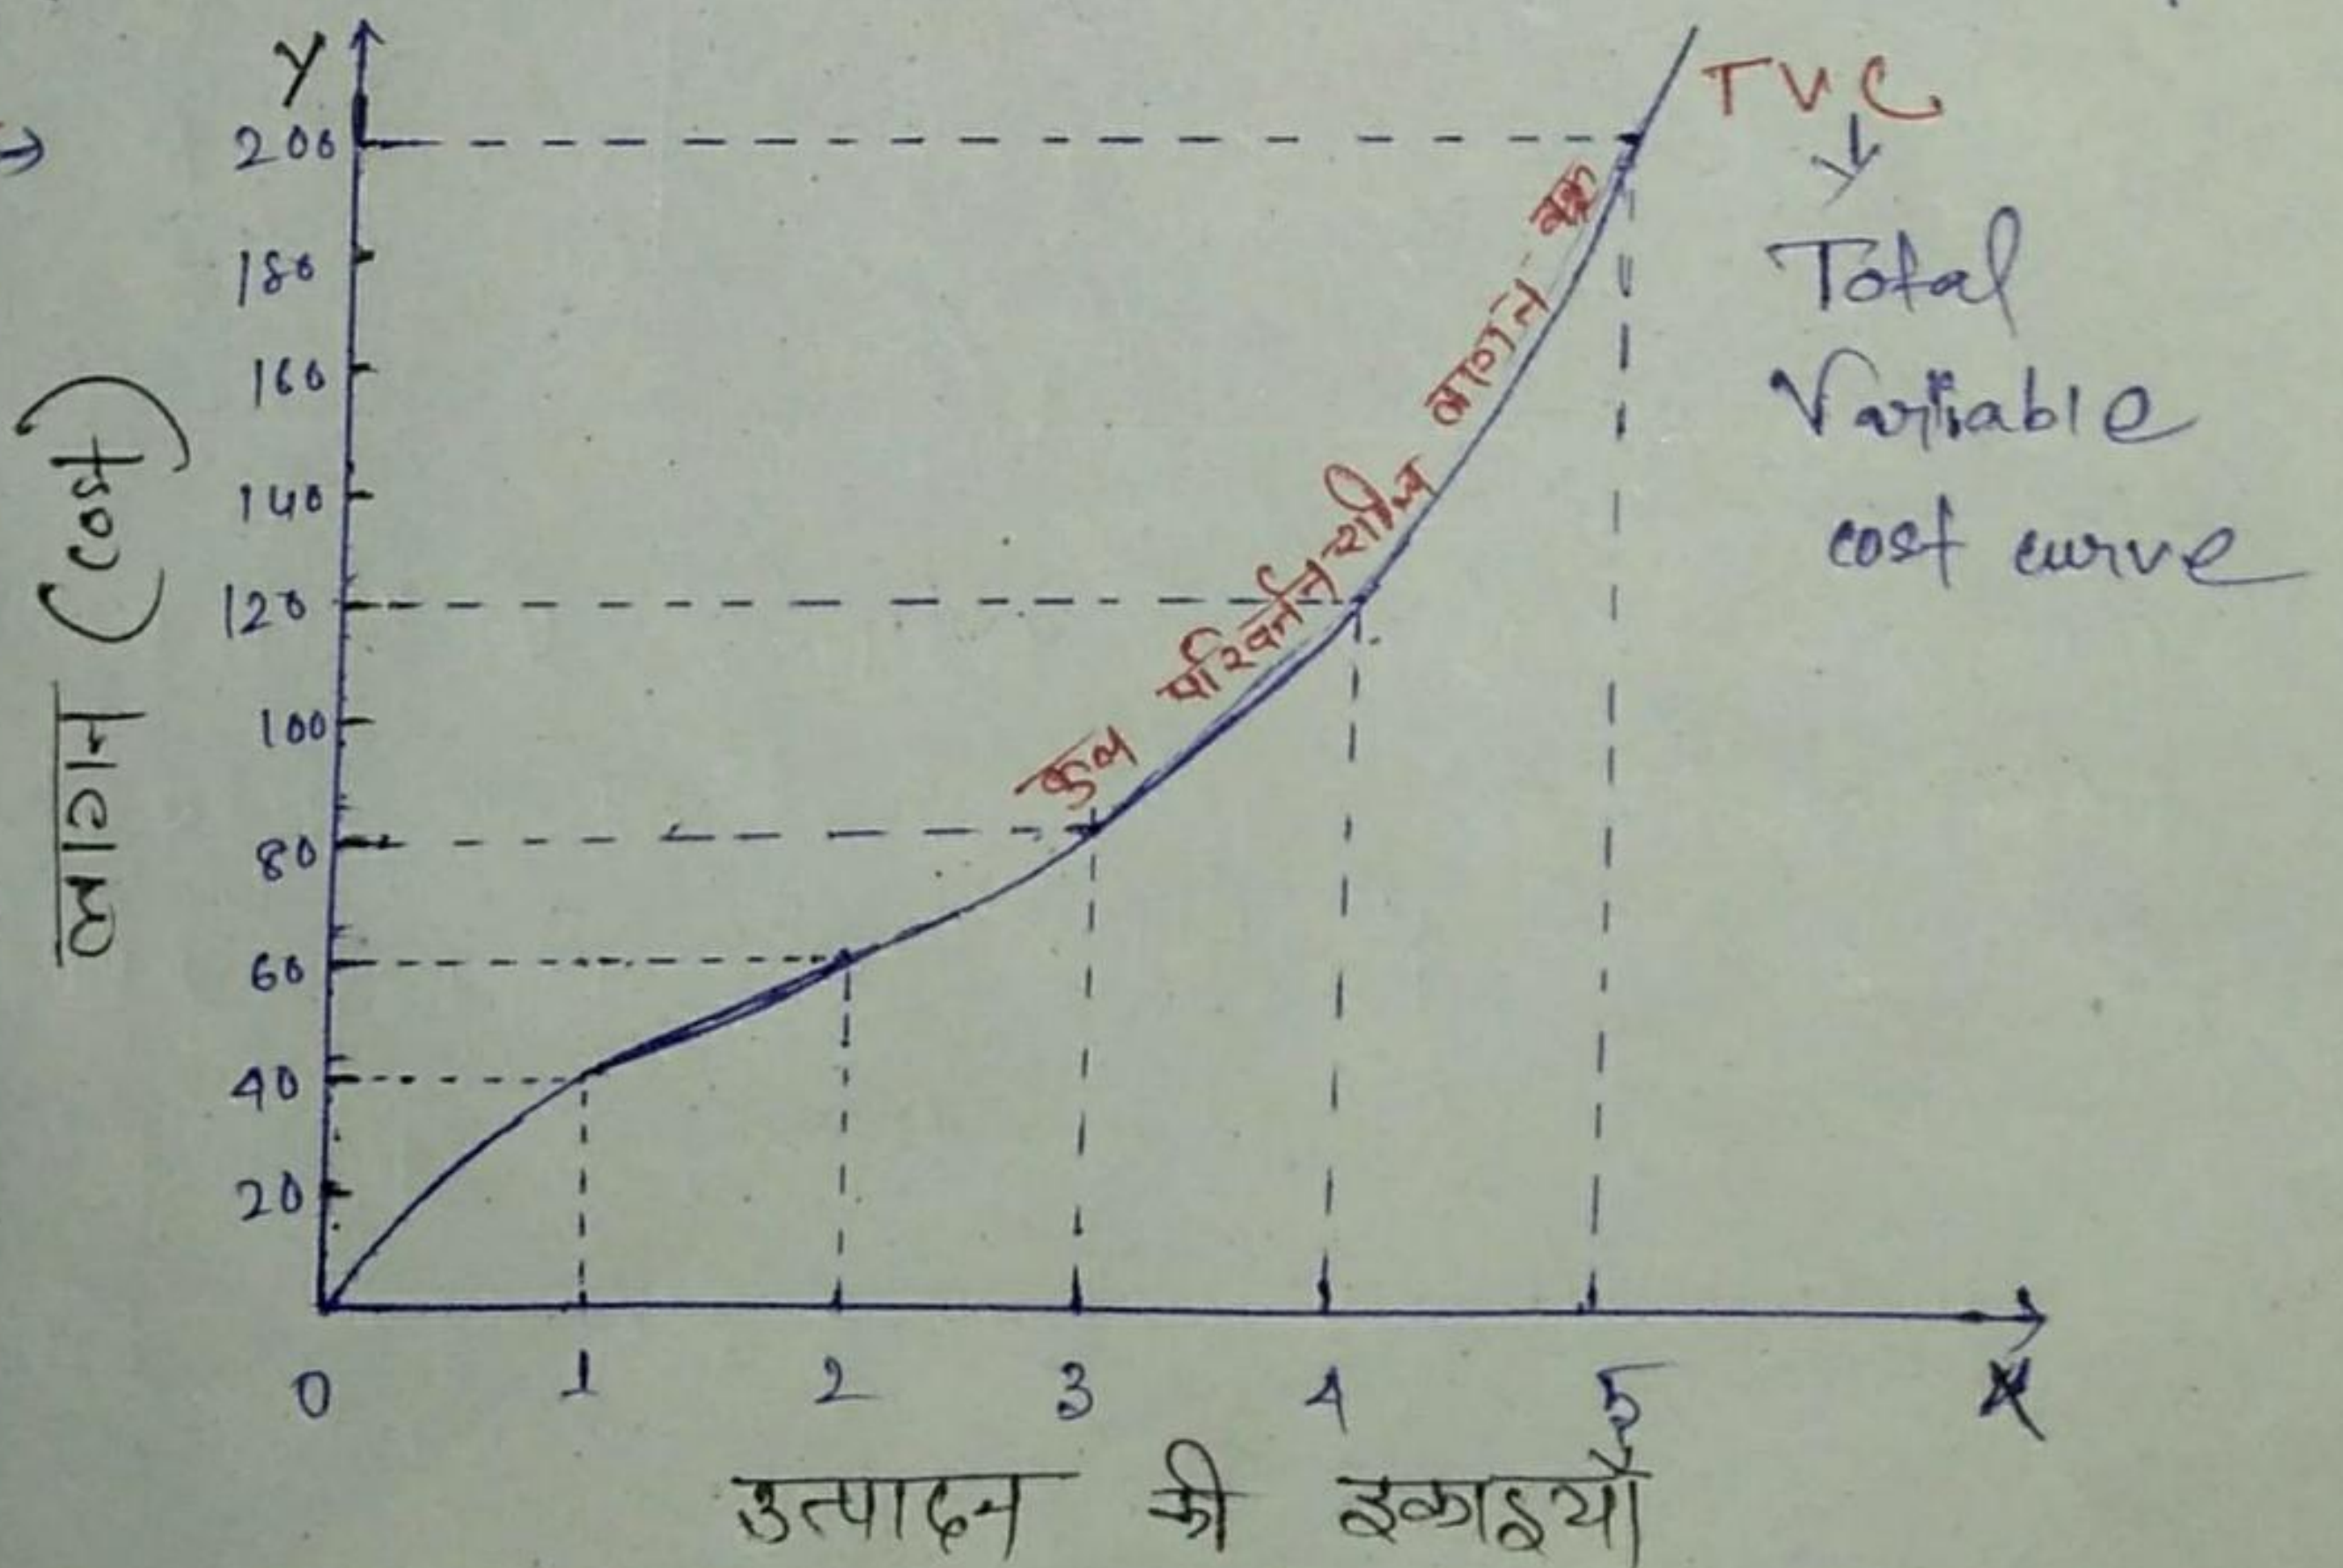 Y
200
180
160
140
120
100
80
60
40
20
लागत (Cost)
कुल परिवर्तनशील लागत वक्र
TVC
Total
Variable
cost curve
0 1 2 3 4 5 X
उत्पादन की इकाइयाँ